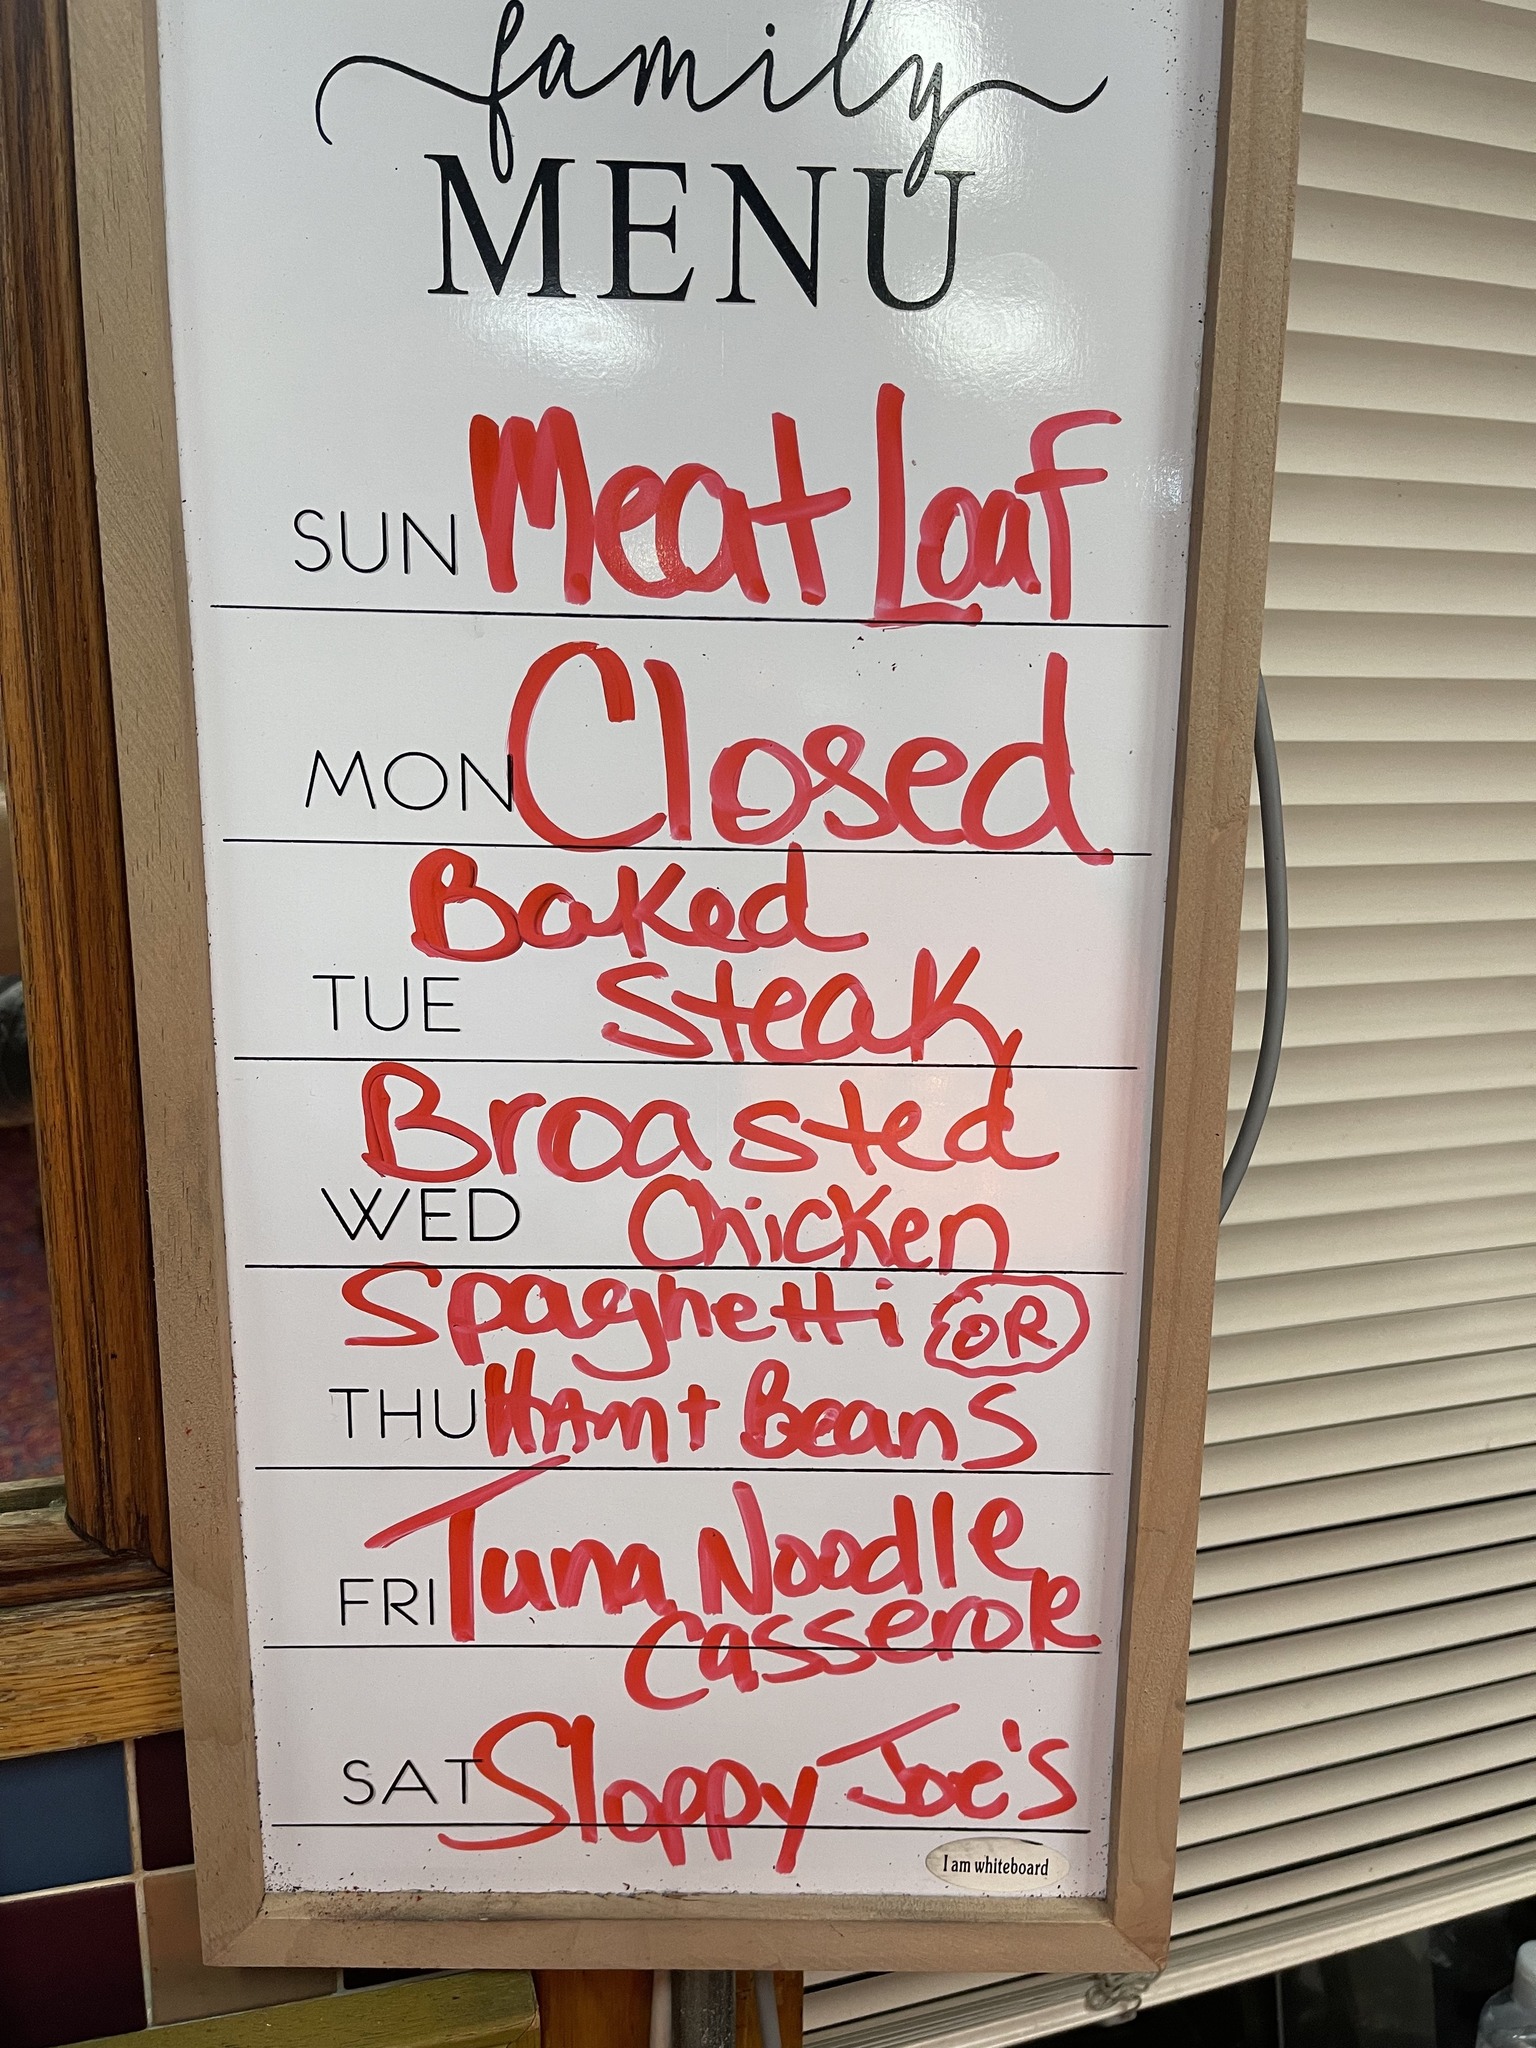 family
MENU
SUN Meat Loaf
MON Closed
Baked
TUE Steak
Broasted
WED Chicken
Spaghetti OR
THU HAm + Beans
FRI Tuna Noodle
Casserole
SAT Sloppy Joe's
I am whiteboard